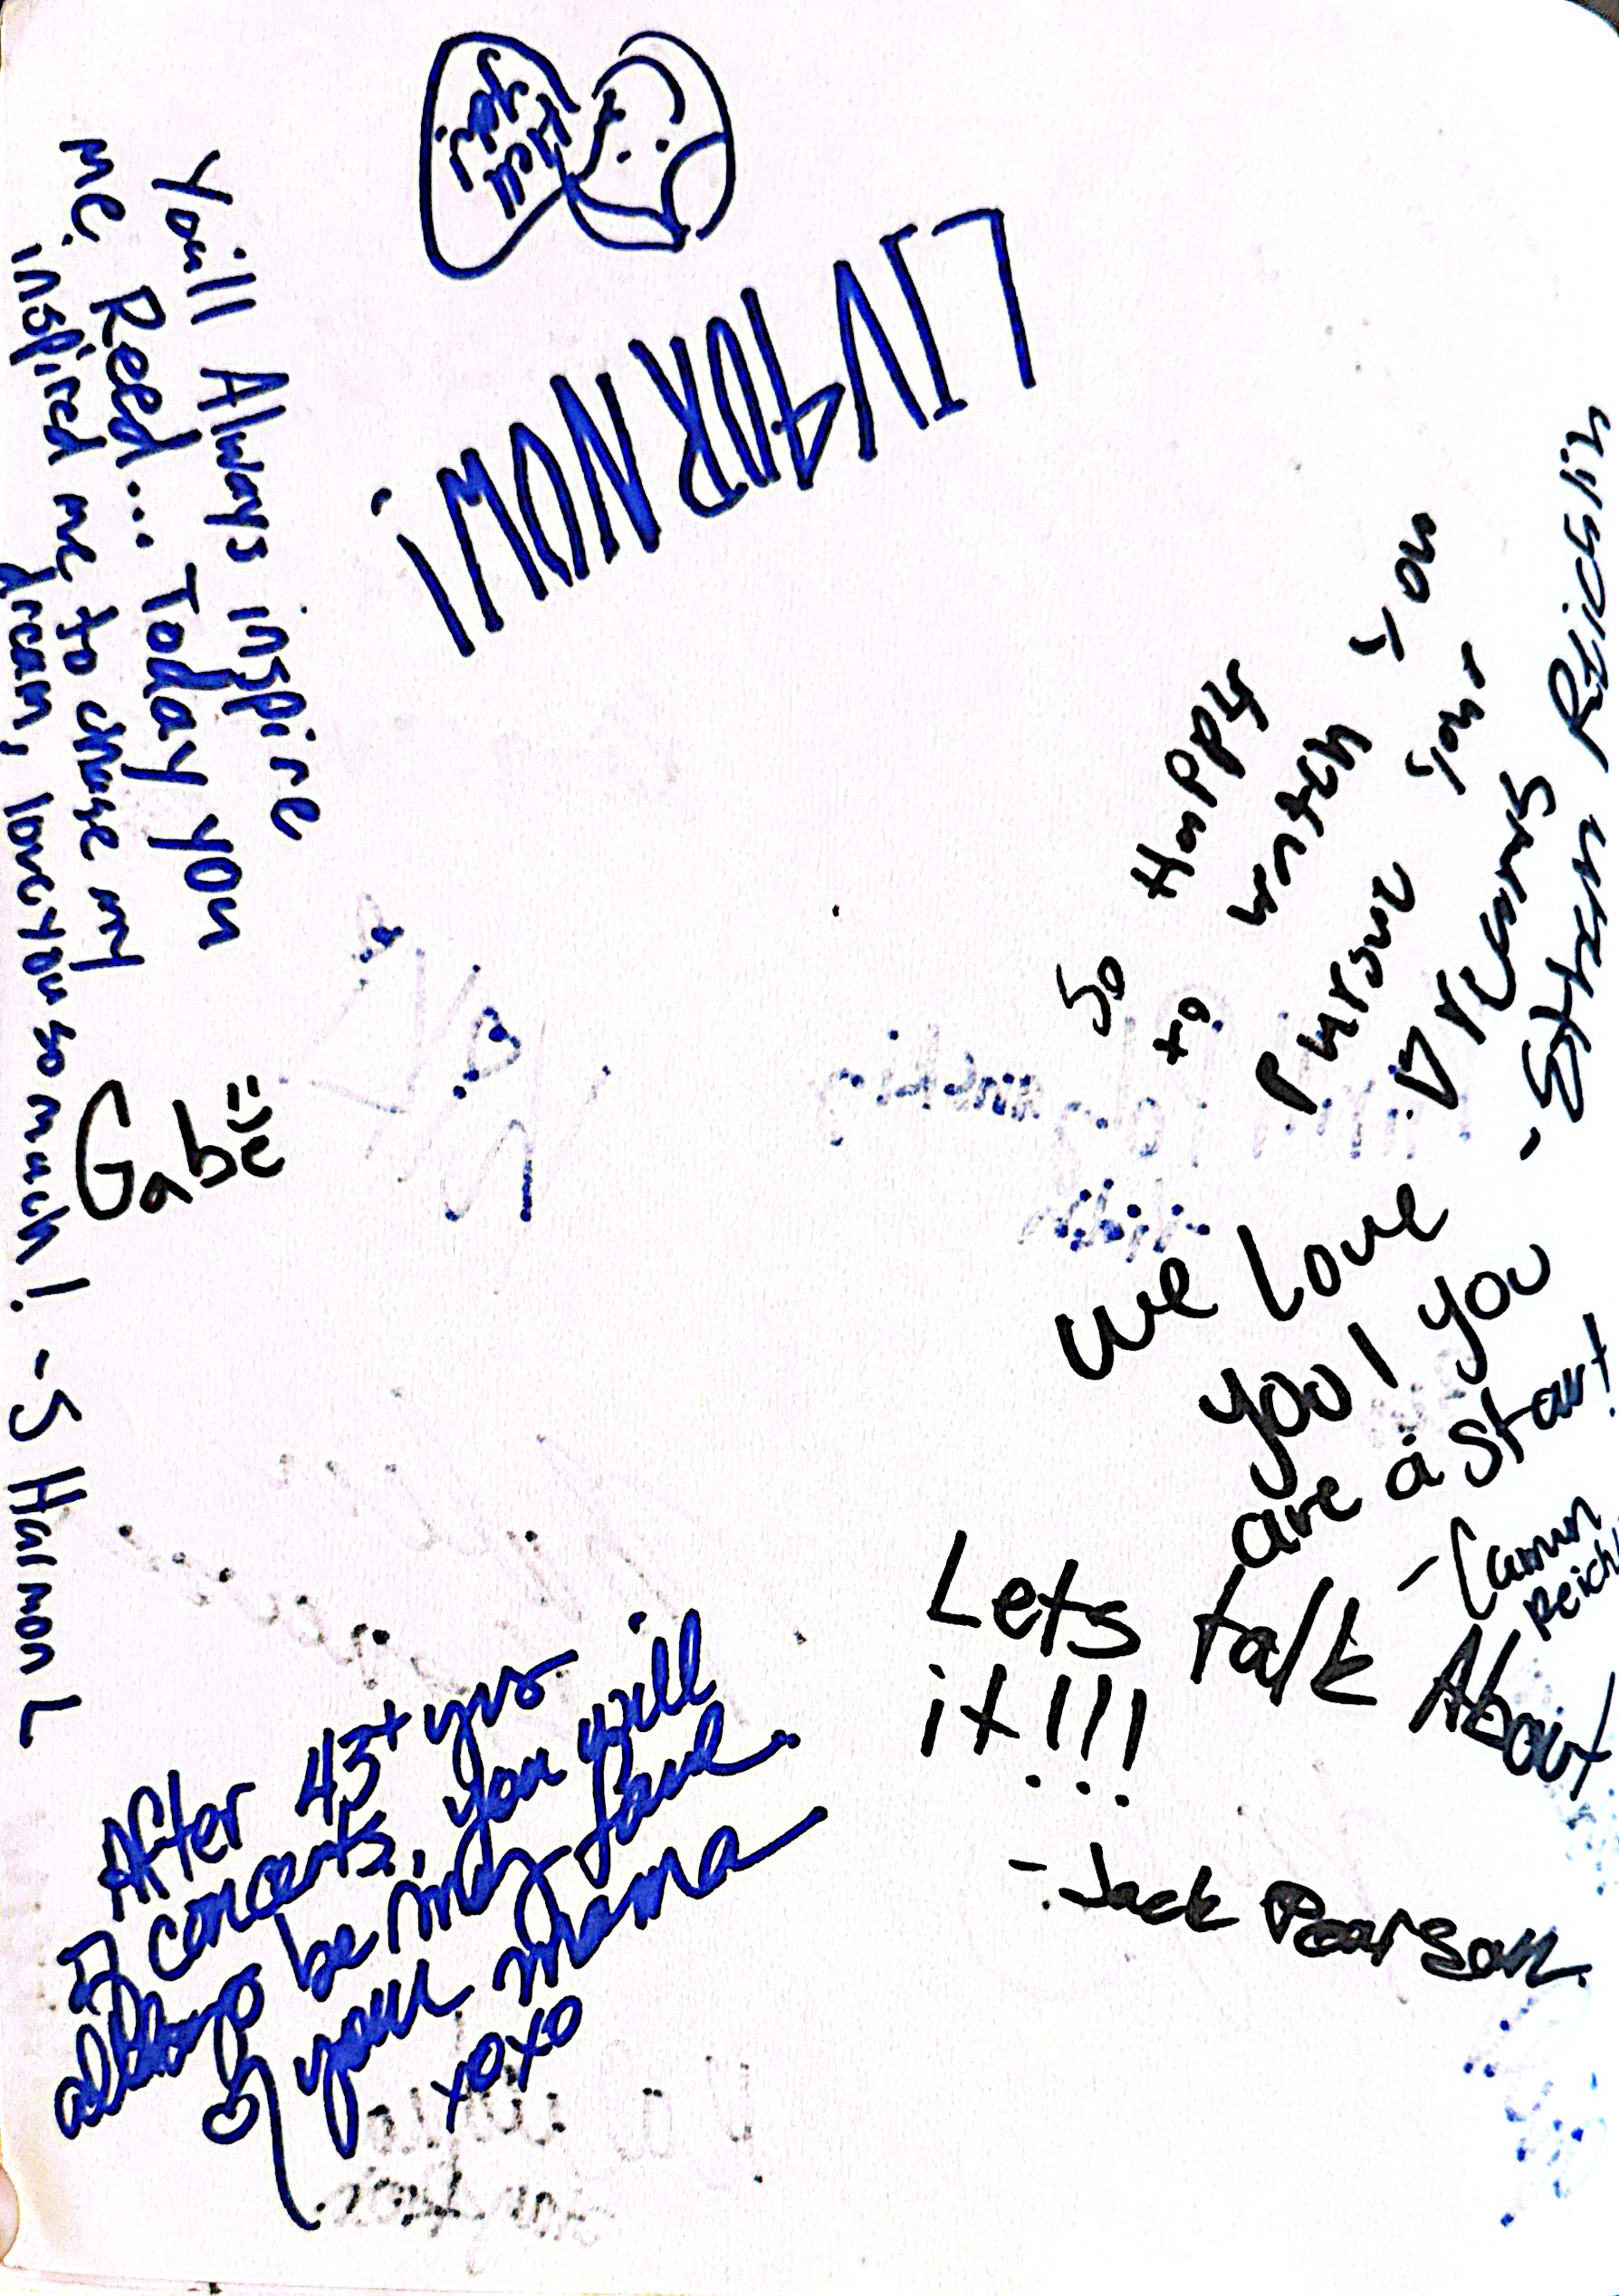 You'll Always inspire
me Reed... Today you
inspired me to chase my
dream, love you so much! -S Halmon L
LIV FOR NOW!
Gabe
So Happy
to watch you
Pursue your
Dreams
-Ethan
We love
you! you
are a star!
Lets talk About
it!!!
-Jack Pearson
After 43+ yrs
of concerts, you will
always be my fave
your Mama
xoxo